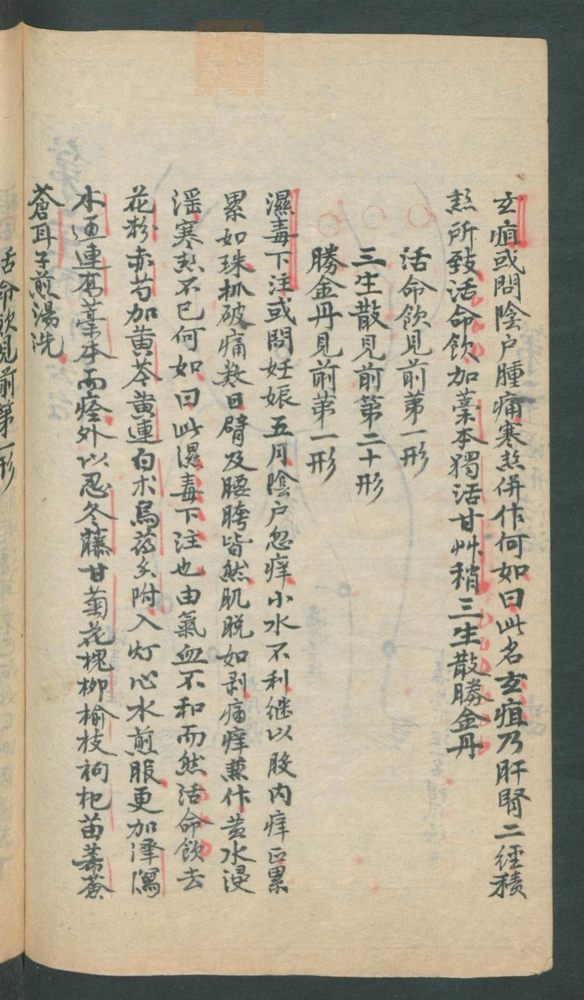 玄疽或問陰户腫痛寒𤍠併作何如曰此名玄疽乃肝腎二經積
𤍠所致活命飲加藁本獨活甘艸稍三生散勝金丹
活命飲見前第一形
三生散見前第二十形
勝金丹見前第一形
濕毒下注或問妊娠五月陰户忽痒小水不利继以股内痒㱏累
累如珠抓破痛数日臂及腰胯皆然肌脱如剥痛痒蒸作黄水浸
滛寒𤍠不已何如曰此湿毒下注也由氣血不和而然活命飲去
花粉赤芍加黄芩黄連白朮烏药香附入灯心水煎服更加澤瀉
木通連翘藁本而痊外以忍冬藤甘菊花槐柳榆枝枸杞苗蓁蒼
蒼耳子煎湯洗
活命飲見前第一形